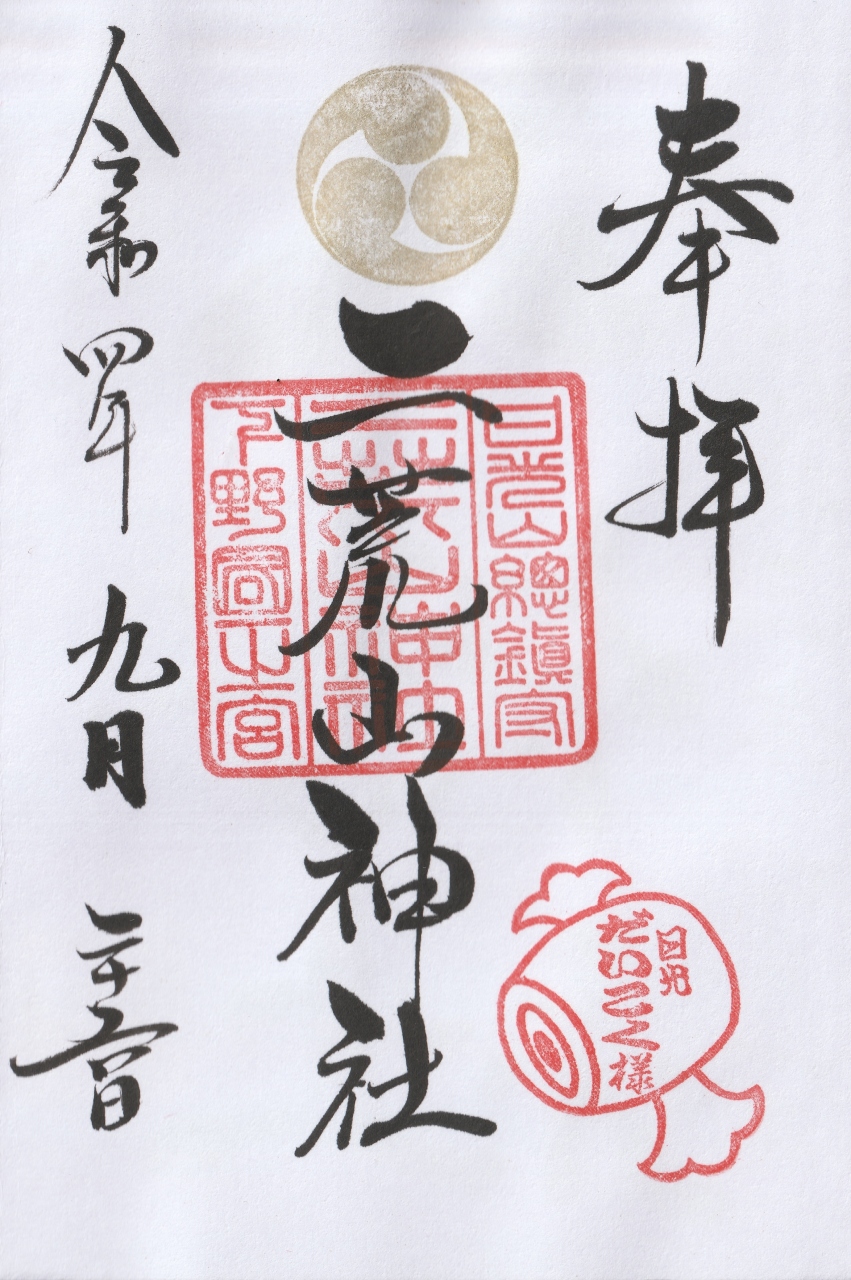 奉拝
二荒山神社
令和四年 九月 二十六日
日光山總鎮守
二荒山神社
下野國一之宮
日光
だいこく様